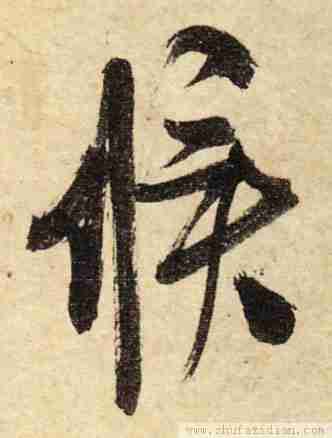 候
www.shufazidian.com